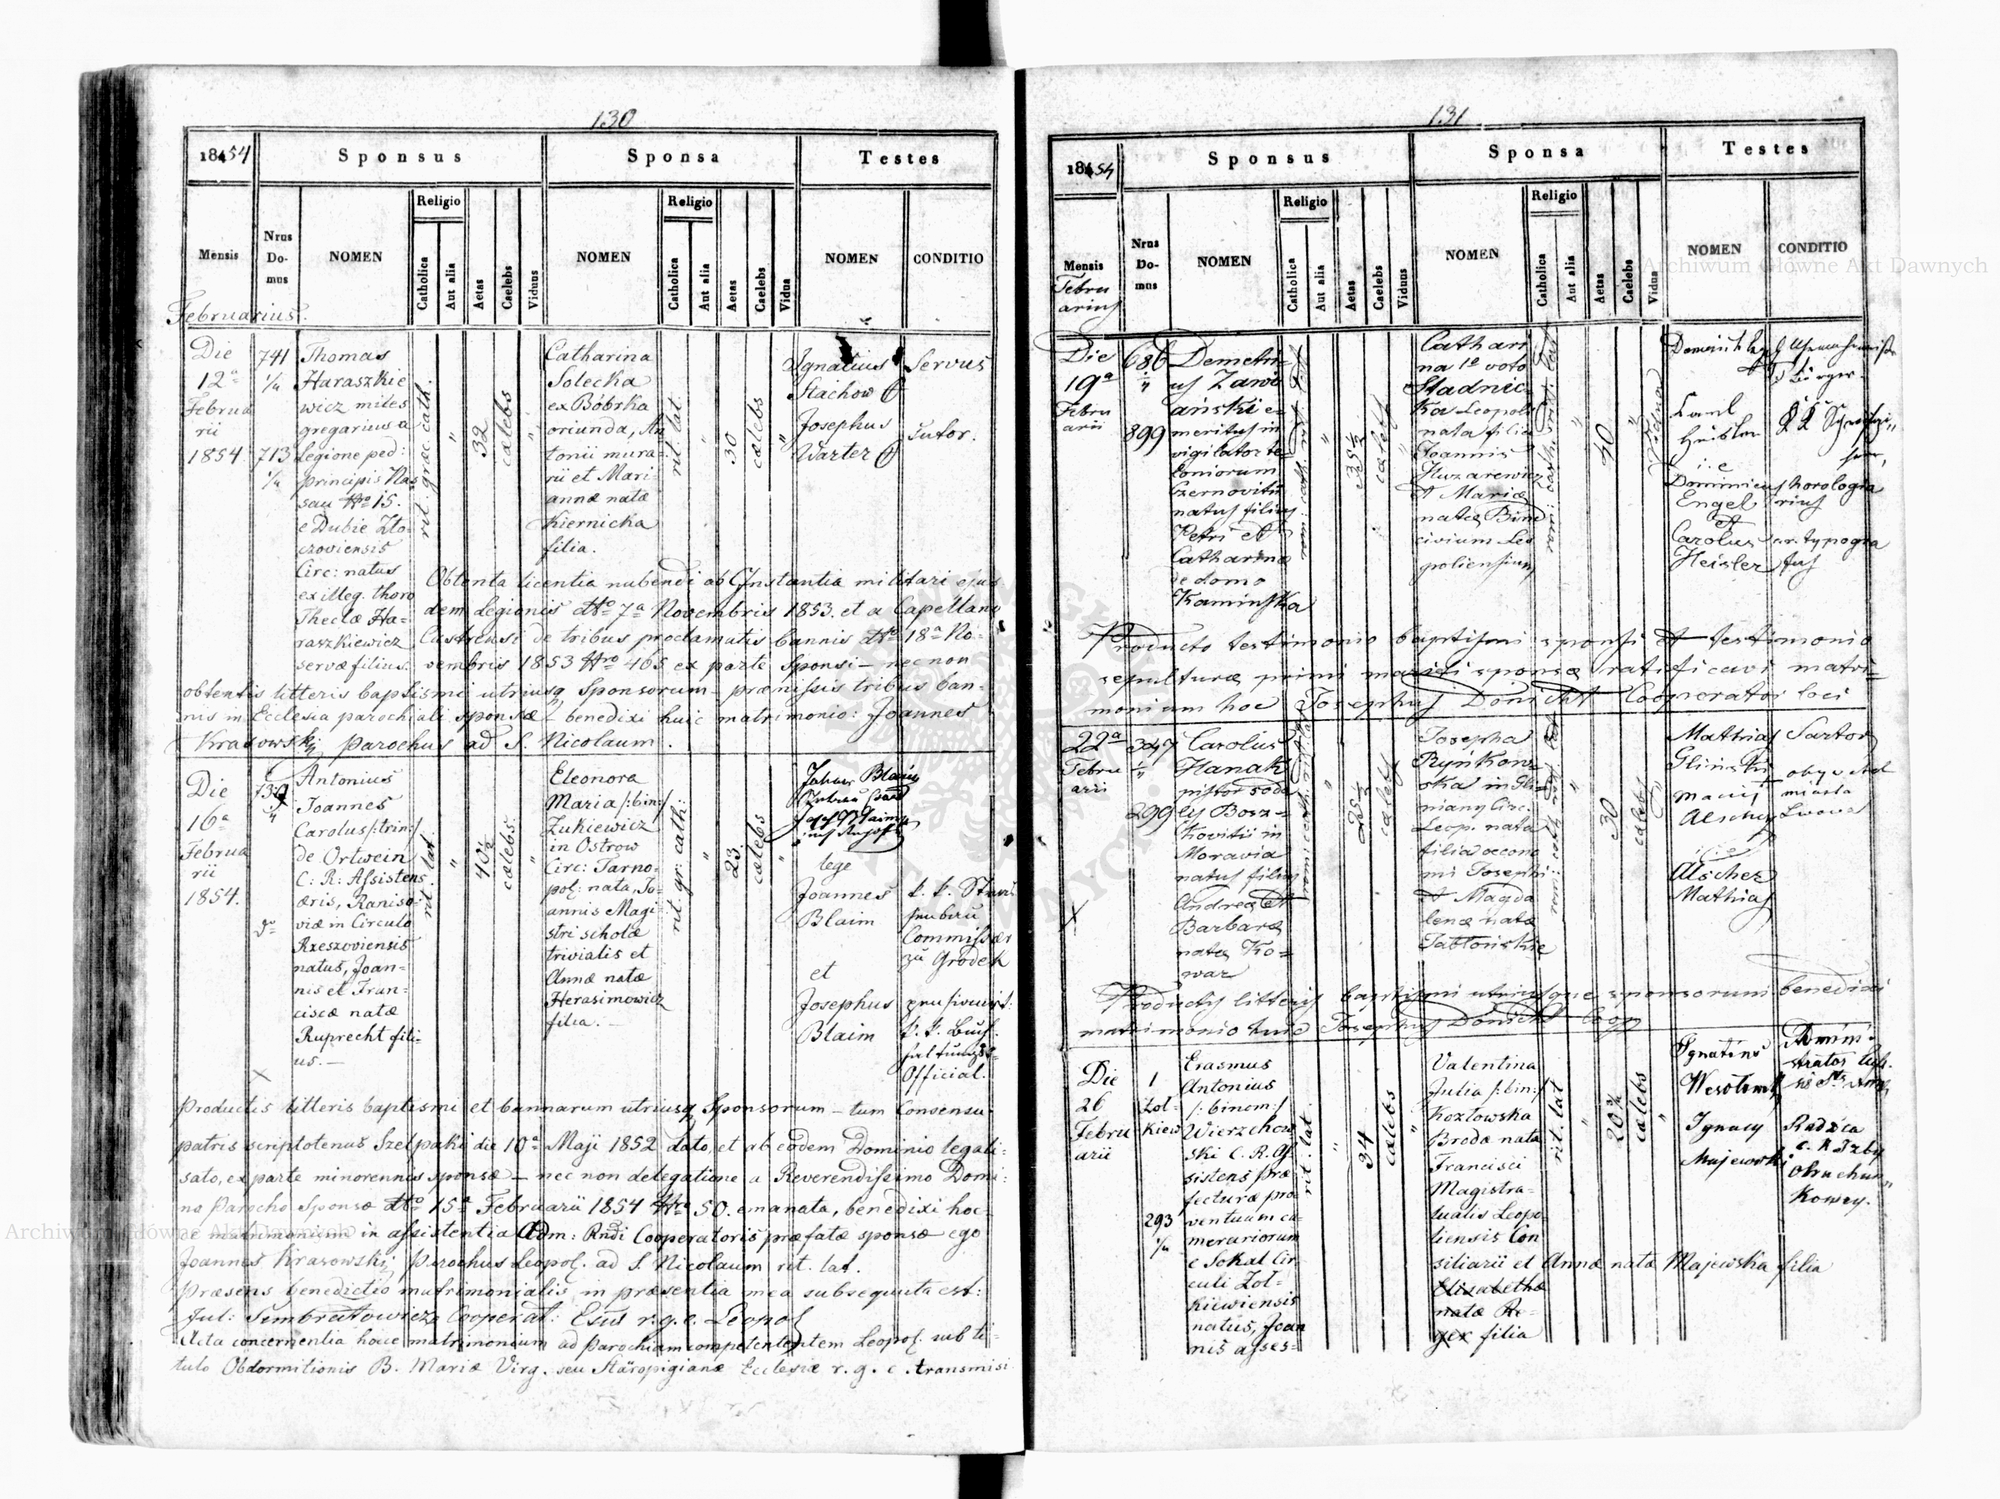 130
1854
Sponsus
Sponsa
Testes
Mensis
Nrus Do-mus
NOMEN
Religio
Catholica
Aut alia
Aetas
Caelebs
Vidus
NOMEN
Religio
Catholica
Aut alia
Aetas
Caelebs
Vidua
NOMEN
CONDITIO
Februarius.
Die
12a
Februa
rii
1854
741
1/4
713
1/4
Thomas
Haraszkie
wicz miles
gregarius a
Legione ped:
principis Nas
sau Nro 15.
e Dubie Zło-
czoviensis
Circ: natus
ex illeg. thoro
Theclæ Ha-
raszkiewicz
servæ filius.
rit. græc. cath.
"
32
cælebs
"
Catharina
Solecka
ex Bóbrka
oriunda, An
tonii mura-
rii et Mari-
annæ natæ
Kiernicka
filia.
rit. lat.
"
30
cælebs
"
Ignatius
Stachow
Josephus
Warter
Servus
Sutor.
Obtenta licentia nubendi ab Instantia militari ejus
dem Legionis dto 7a Novembris 1853. et a Capellano
Castrensi de tribus proclamatis bannis dto 18a No-
vembris 1853 Nro 405 ex parte Sponsi – nec non
obtentis litteris baptismi utriusq Sponsorum – præmissis tribus ban-
nis in Ecclesia parochiali sponsæ – benedixi huic matrimonio: Joannes
Krasowskij parochus ad S. Nicolaum.
Die
16a
Februa
rii
1854.
Antonius
Joannes
Carolus /:trin:/
de Ortwein
C: R: Assistens
æris, Raniso-
viæ in Circulo
Rzeszoviensis
natus, Joan-
nis et Fran-
ciscæ natæ
Ruprecht fili-
us.—
rit. lat.
"
40½
cælebs.
"
Eleonora
Maria /:bin:/
Żukiewicz
in Ostrow
Circ: Tarno-
pol: nata, Jo-
annis Magi-
stri scholæ
trivialis et
Annæ natæ
Herasimowicz
filia.—
rit. gr: cath:
"
23.
cælebs
"
lege
Joannes
Blaim
et
Josephus
Blaim
Commissær
zu Grodek
Official.
Productis litteris baptismi et bannarum utriusq Sponsorum – tum Consensu
patris scriptotenus Szelpaki die 10a Maji 1852 dato, et ab eodem Dominio legali-
sato, ex parte minorennis sponsæ – nec non delegatione a Reverendissimo Domi-
no Parocho Sponsæ dto 15a Februarii 1854 Nro 50. emanata, benedixi hoc-
ce matrimonium in assistentia Adm: Rndi Cooperatoris præfatæ sponsæ ego
Joannes Krasowskij Parochus Leopol. ad S. Nicolaum rit. lat.
Præsens benedictio matrimonialis in præsentia mea subsequuta est:
Jul: Sembratowicz Cooperat: Ecus r. g. c. Leopol
Acta concernentia hocce matrimonium ad Parochiam competentem Leopol. sub ti-
tulo Obdormitionis B. Mariæ Virg. seu Stäropigianæ Ecclesiæ r. g. c. transmisi
131
1854
Sponsus
Sponsa
Testes
Mensis
Nrus Do-mus
NOMEN
Religio
Catholica
Aut alia
Aetas
Caelebs
Vidus
NOMEN
Religio
Catholica
Aut alia
Aetas
Caelebs
Vidua
NOMEN
CONDITIO
Febru
arius
Die
19a
Febru
arii
686
899
Demetri-
us Zawi
ański e-
meritus in
vigilator te-
loniorum
Czernovitii
natus filius
Petri et
Catharina
de domo
Kamińska
"
35½
cælebs
"
Cathari
na 1o voto
Stadnic-
ka Leopoli
nata filia
Joannis
et Mariæ
natæ
civium Leo
poliensium
"
40
"
Vidua
i. e.
Dominicus
Engel
et
Carolus
Heisler
horologia
rius
typogra
fus
Producto testimonio baptismi sponsi et testimonio
sepulturæ primi mariti sponsæ ratificavi matri-
monium hoc Josephus Donicht Cooperator loci
22a
Febru
arii
347
299
Carolus
Hanak
pistor soda
lis Bosz-
kovitii in
Moravia
natus filius
Andreæ et
Barbaræ
natæ Ko-
war
"
25½
cælebs
"
Josepha
Ryńkow-
ska in Gli-
niany Circ.
Leop. nata
filia oecono
mi Josephi
et Magda
lenæ natæ
Jabłońskie
"
30
cælebs
"
Mathias
Gliński
Maciej
Alscher
i. e.
Alscher
Mathias
Sartor
obywatel
miasta
Lwowa
Productis litteris baptismi utriusque sponsorum benedixi
matrimonio huic Josephus Donicht Coop
Die
26
Febru
arii
1
Żoł-
kiew
293
1/4
Erasmus
Antonius
/:binom:/
Wierzchow
ski C. R. As
sistens præ
fecturæ pro
ventuum ca-
merariorum
e Sokal Cir
culi Żoł-
kiewiensis
natus, Joan
nis asses-
rit. lat.
"
34
cælebs
"
Valentina
Julia /:bin:/
Kozłowska
Brodæ nata
Francisci
Magistra-
tualis Leopo-
liensis Con
siliarii et Annæ natæ Majewska filia
Elisabethæ
natæ Ro-
ger filia
rit. lat
"
20¾
cælebs
"
Ignatius
Ignacy
Majewski
Radzca
Archiwum Główne Akt Dawnych
Archiwum Główne Akt Dawnych